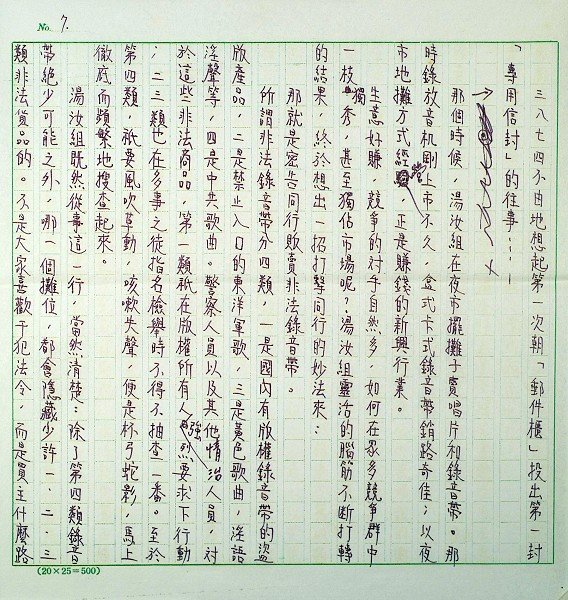 No. 7.
三八七四不由地想起第一次朝「郵件櫃」投出第一封
「專用信封」的往事……
那個時候，湯汝組在夜市擺攤子賣唱片和錄音帶。那
時錄放音机剛上市不久，盒式卡式錄音帶銷路奇佳；以夜
市地攤方式經營，正是賺錢的新興行業。
生意好賺，競爭的對手自然多，如何在眾多競爭群中
一枝獨秀，甚至獨佔市場呢？湯汝組靈活的腦筋不断打轉
的結果，終於想出一招打擊同行的妙法來：
那就是密告同行販賣非法錄音帶。
所謂非法錄音帶分四類，一是國內有版權錄音帶的盜
版產品，二是禁止入口的東洋軍歌，三是黃色歌曲，淫語
淫聲等，四是中共歌曲。警察人員以及其他情治人員，対
於這些非法商品，第一類祇在版權所有人強烈要求下行動
；二三類也在多事之徒指名檢舉時不得不抽查一番。至於
第四類，祇要風吹草動，咳嗽失聲，便是杯弓蛇影，馬上
徹底而頻繁地搜查起來。
湯汝組既然從事這一行，當然清楚：除了第四類錄音
帶絕少可能之外，哪一個攤位，都會隱藏少許一、二、三
類非法貨品的。不是大家喜歡干犯法令，而是買主什麼路
(20×25=500)